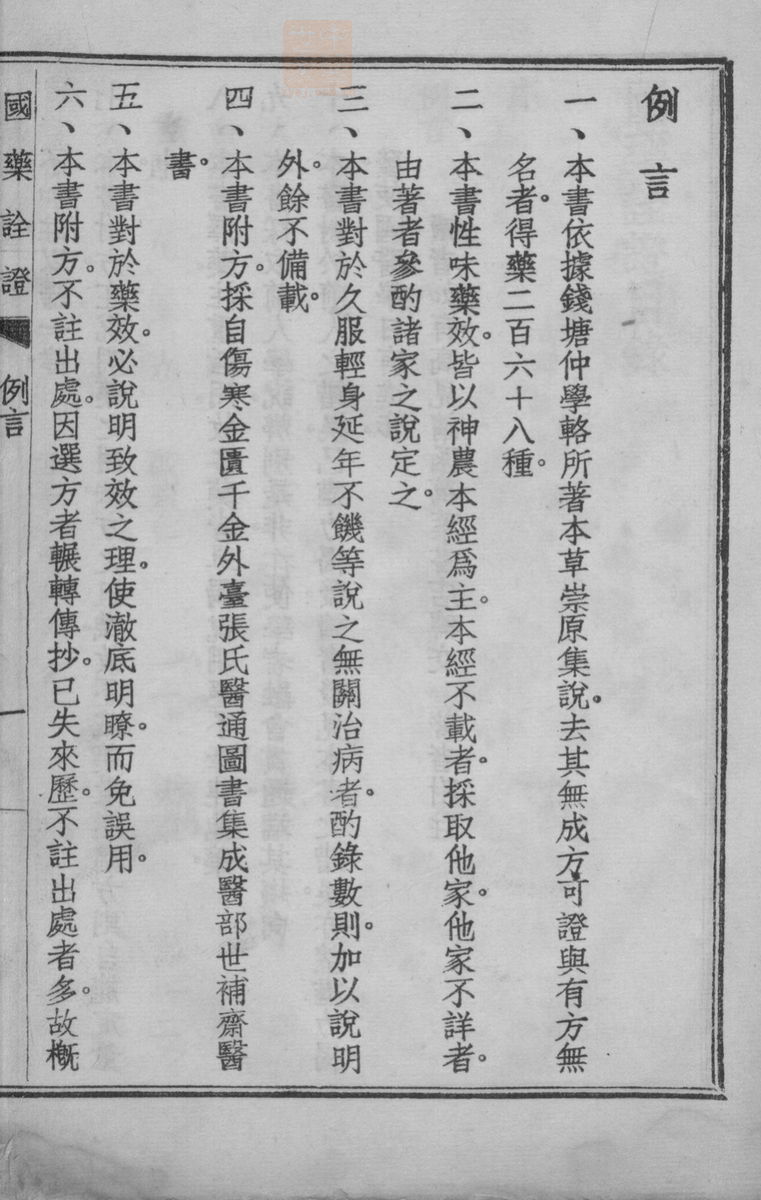 例言
一、本書依據錢塘仲學輅所著本草崇原集說。去其無成方可證與有方無
名者。得藥二百六十八種。
二、本書性味藥效。皆以神農本經爲主。本經不載者。採取他家。他家不詳者。
由著者參酌諸家之說定之。
三、本書對於久服輕身延年不饑等說之無關治病者。酌錄數則。加以說明
外。餘不備載。
四、本書附方。採自傷寒金匱千金外臺張氏醫通圖書集成醫部世補齋醫
書。
五、本書對於藥效。必說明致效之理。使澈底明瞭。而免誤用。
六、本書附方。不註出處。因選方者輾轉傳抄。已失來歷。不註出處者多。故概
國藥詮證 例言 一